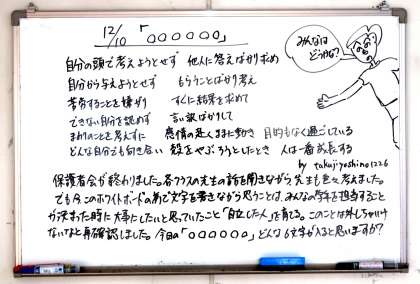 12/10 「○○○○○○」
みんなは
どうかな?
自分の頭で考えようとせず 他人に答えばかり求め
自分から与えようとせず もらうことばかり考え
苦労することを嫌がり すぐに結果を求めて
できない自分を認めず 言い訳ばかりして
まわりのことを考えずに 感情の赴くままに動き 目的もなく過ごしている
どんな自分でも向き合い 殻をやぶろうとしたとき 人は一番成長する
by takujiyoshino1226
保護者会が終わりました。各クラスの先生の話を聞きながら、先生も色々考えました。
でも今、このホワイトボードの前で文字を書きながら思うことは、みんなの学年を担当することが
決まった時に大事にしたいと思っていたこと「自立した人」を育てる。このことは外しちゃいけ
ないなと再確認しました。今日の「○○○○○○」どんな6文字が入ると思いますか?